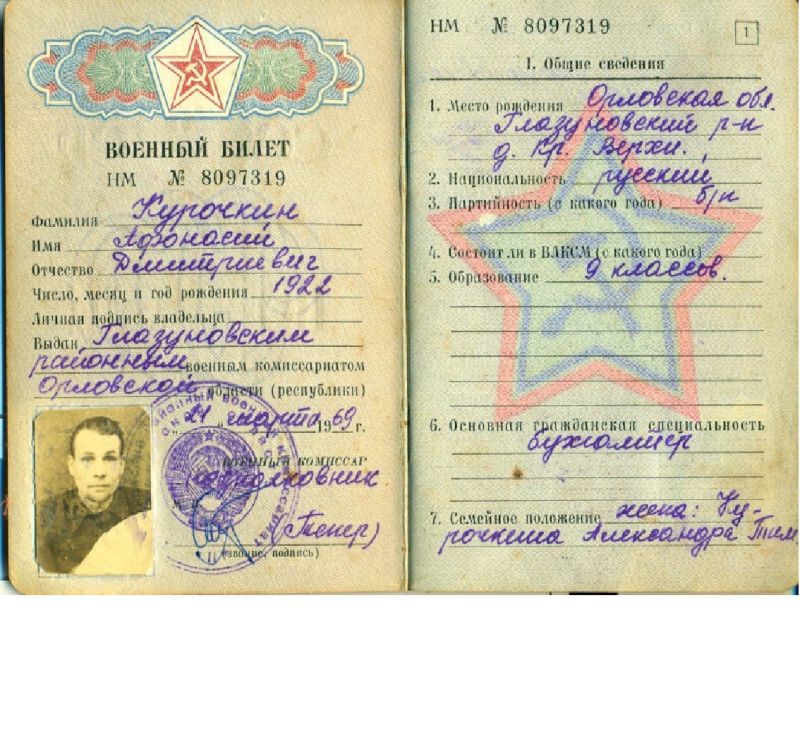 ВОЕННЫЙ БИЛЕТ
НМ № 8097319
Фамилия Курочкин
Имя Афонасий
Отчество Дмитриевич
Число, месяц и год рождения 1922
Личная подпись владельца
Выдан Глазуновским
районным военным комиссариатом
Орловской области (республики)
„21" марта 1969 г.
ВОЕННЫЙ КОМИССАР
подполковник
(звание, подпись)
НМ № 8097319
1
I. Общие сведения
1. Место рождения Орловская обл.
Глазуновский р-н
д. Кр. Верхи.
2. Национальность русский
3. Партийность (с какого года) б/п
4. Состоит ли в ВЛКСМ (с какого года)
5. Образование 9 классов.
6. Основная гражданская специальность
бухгалтер
7. Семейное положение жена: Ку-
рочкина Александра Тим.